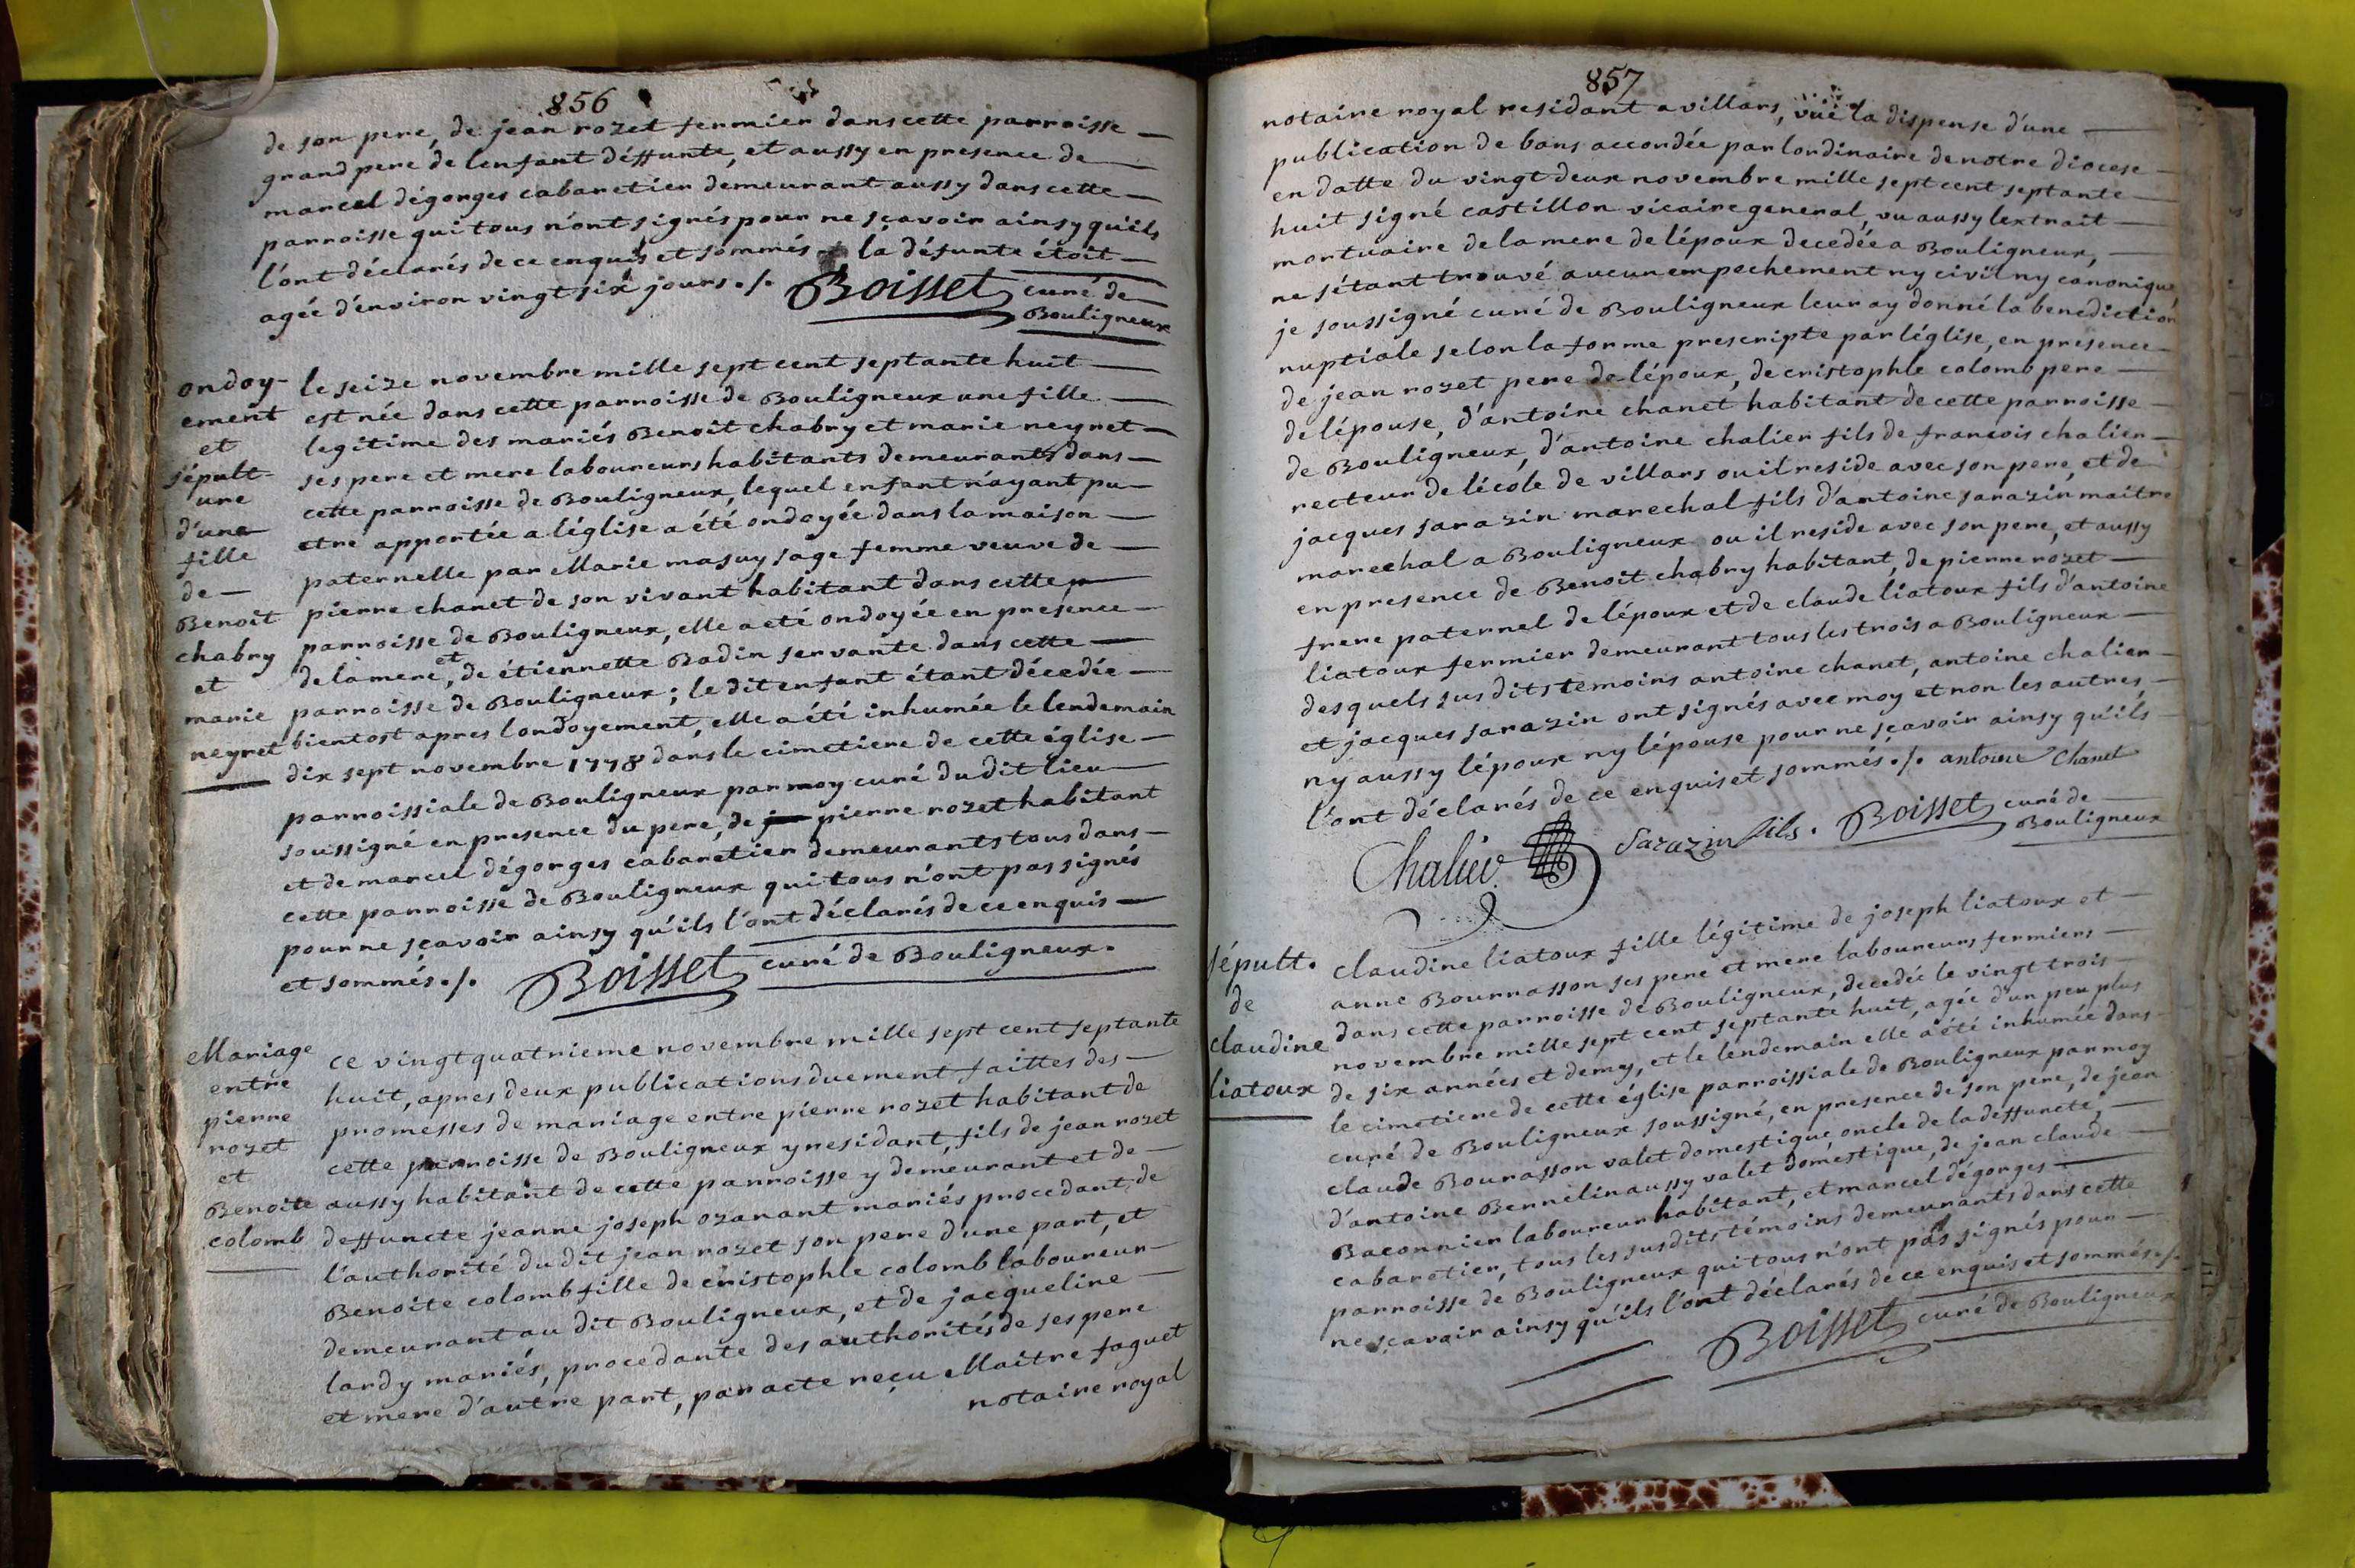 856
de son pere, de jean rozet fermier dans cette parroisse
grand pere de lenfant déffunte, et aussy en presence de
marcel dégorges cabaretier demeurant aussy dans cette
parroisse qui tous n'ont signés pour ne sçavoir ainsy qu'ils
l'ont déclarés de ce enquis et sommés la défunte étoit
agée d'environ vingt six jours ./. Boisset curé de
Bouligneux
ondoy-
ement
et
sépult-
ure
d'une
fille
de
Benoit
chabry
et
marie
neyret
le seize novembre mille sept cent septante huit
est née dans cette parroisse de Bouligneux une fille
legitime des mariés Benoit chabry et marie neyret
ses pere et mere laboureurs habitants demeurants dans
cette parroisse de Bouligneux, lequel enfant n'ayant pu
etre apportée a léglise a été ondoyée dans la maison
paternelle par Marie masuy sage femme veuve de
pierre chanet de son vivant habitant dans cette
parroisse de Bouligneux, elle a eté ondoyée en presence
de la mere, et de étiennette Badin servante dans cette
parroisse de Bouligneux; le dit enfant étant décedée
bientost apres londoyement, elle a été inhumée le lendemain
dix sept novembre 1778 dans le cimetiere de cette église
parroissiale de Bouligneux par moy curé du dit lieu
soussigné en presence du pere, de pierre rozet habitant
et de marcel dégorges cabaretier demeurants tous dans
cette parroisse de Bouligneux qui tous n'ont pas signés
pour ne sçavoir ainsy qu'ils l'ont déclarés de ce enquis
et sommés ./. Boisset curé de Bouligneux.
Mariage
entre
pierre
rozet
et
Benoite
colomb
ce vingt quatrieme novembre mille sept cent septante
huit, apres deux publications duement faittes des
promesses de mariage entre pierre rozet habitant de
cette parroisse de Bouligneux y residant, fils de jean rozet
aussy habitant de cette parroisse y demeurant et de
deffuncte jeanne joseph ozanant mariés procedant de
l'authorité du dit jean rozet son pere d'une part, et
Benoite colomb fille de cristophle colomb laboureur
demeurant au dit Bouligneux, et de jacqueline
lardy mariés, procedante des authorités de ses pere
et mere d'autre part, par acte reçu Maitre faguet
notaire royal
857
notaire royal residant a villars, vüe la dispense d'une
publication de bans accordée par lordinaire de notre diocese
en datte du vingt deux novembre mille sept cent septante
huit signé castillon vicaire general, vu aussy lextrait
mortuaire de la mere de lépoux decedée a Bouligneux,
ne sétant trouvé aucun empechement ny civil ny canonique
je soussigné curé de Bouligneux leur ay donné la benediction
nuptiale selon la forme prescripte par léglise, en presence
de jean rozet pere de lépoux, de cristophle colomb pere
de lépouse, d'antoine chanet habitant de cette parroisse
de Bouligneux, d'antoine chalier fils de francois chalier
recteur de lécole de villars ou il reside avec son pere, et de
jacques sarazin marechal fils d'antoine sarazin maitre
marechal a Bouligneux ou il reside avec son pere, et aussy
en presence de Benoit chabry habitant, de pierre rozet
frere paternel de lépoux et de claude liatoux fils d'antoine
liatoux fermier demeurant tous les trois a Bouligneux
desquels sus dits temoins antoine chanet, antoine chalier
et jacques sarazin ont signés avec moy et non les autres,
ny aussy lépoux ny lépouse pour ne sçavoir ainsy qu'ils
l'ont déclarés de ce enquis et sommés ./. antoine Chanet
Chalier Sarazin fils. Boisset curé de
Bouligneux
sépult.
de
claudine
liatoux
claudine liatoux fille légitime de joseph liatoux et
anne Bournasson ses pere et mere laboureurs fermiers
dans cette parroisse de Bouligneux, decedée le vingt trois
novembre mille sept cent septante huit, agée d'un peu plus
de six années et demy, et le lendemain elle a été inhumée dans
le cimetiere de cette église parroissiale de Bouligneux par moy
curé de Bouligneux soussigné, en presence de son pere, de jean
claude Bourasson valet domestique, oncle de la deffuncte,
d'antoine Bernelin aussy valet domestique, de jean claude
Baconnier laboureur habitant, et marcel dégorges
cabaretier, tous les susdits témoins demeurants dans cette
parroisse de Bouligneux qui tous n'ont pas signés pour
ne sçavoir ainsy qu'ils l'ont déclarés de ce enquis et sommés ./.
Boisset curé de Bouligneux